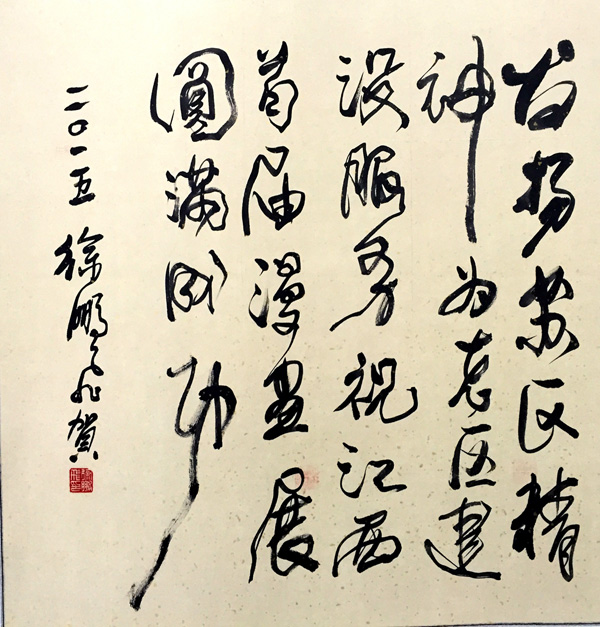 发扬苏区精
神为老区建
设服务祝江西
首届漫画展
圆满成功
二〇一五 徐鹏飞贺